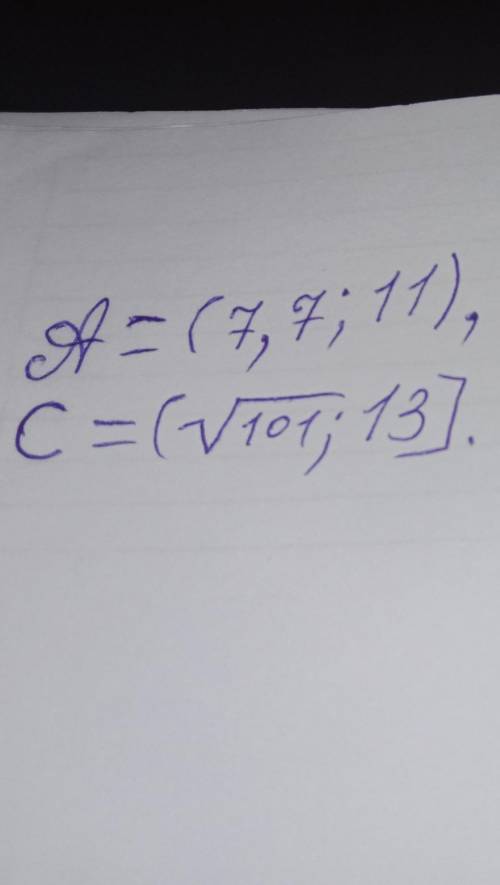 A = (7,7; 11),
C = (√101; 13].